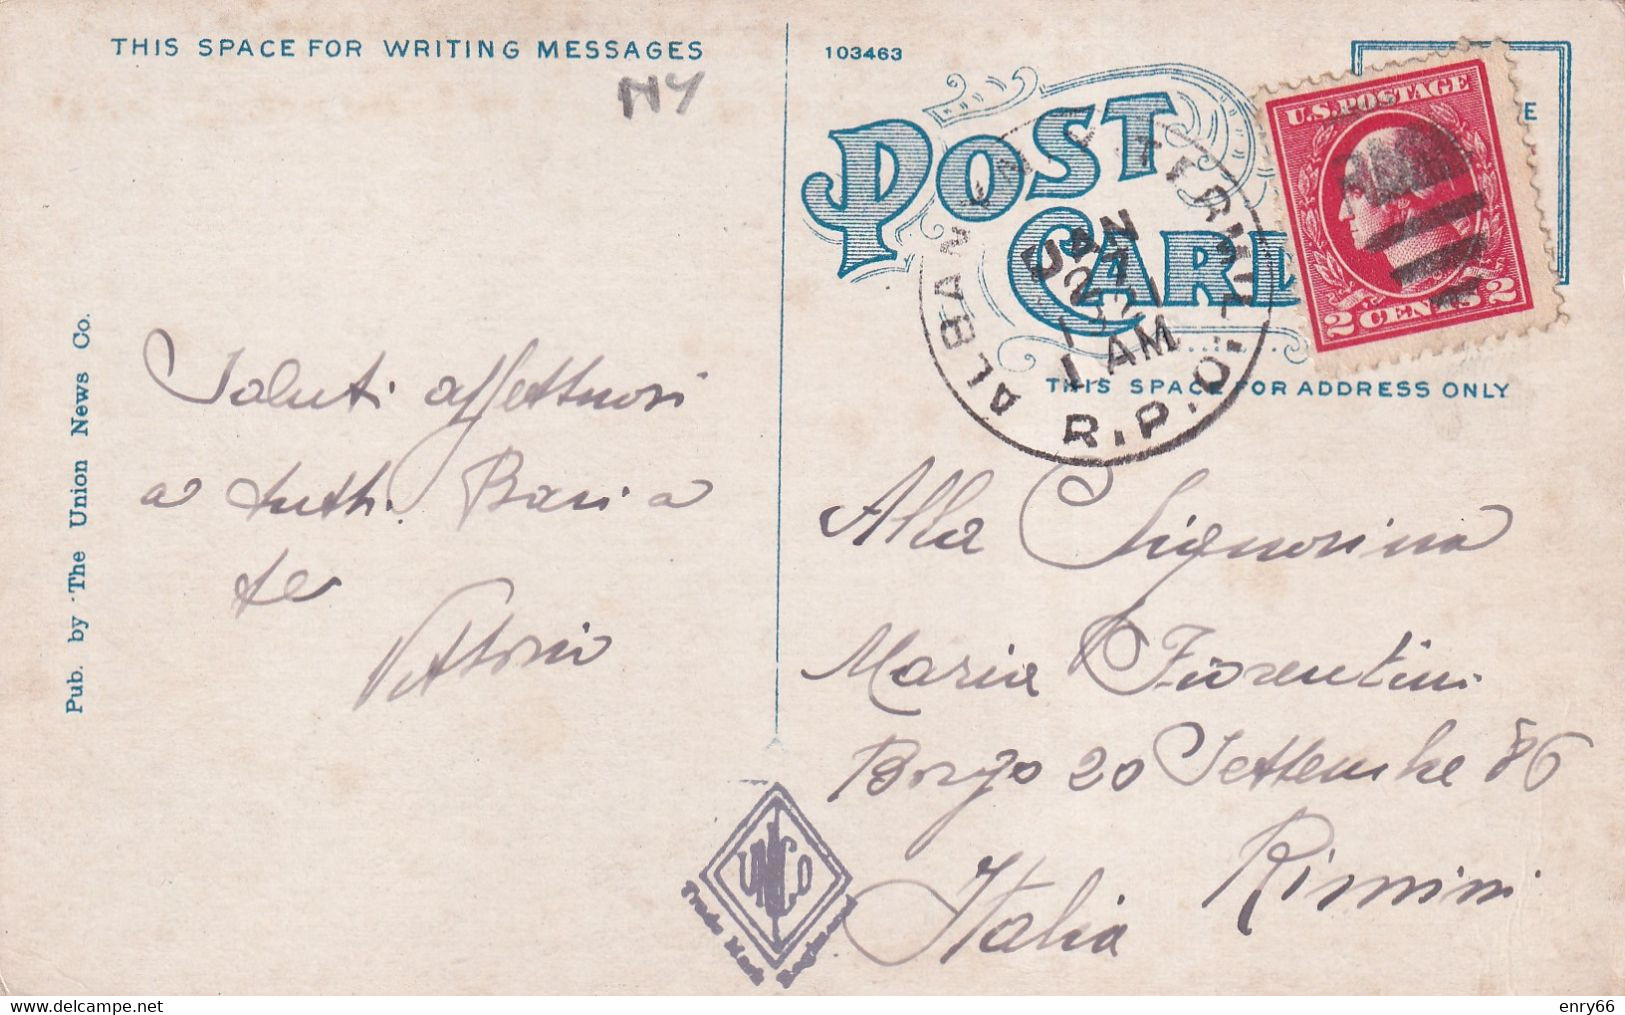 THIS SPACE FOR WRITING MESSAGES
NY
Saluti affettuosi
a tutti. Baci a
te
Vittorio
Pub. by The Union News Co.
103463
POST
CARD
E
U.S. POSTAGE
2 CENTS 2
ALBANY, N.Y. TERML.
JAN
1 AM
R.P.O.
THIS SPACE FOR ADDRESS ONLY
Alla Signorina
Maria Fiorentini
Borgo 20 Settembre 86
Rimini
Italia
UNCO
Trade Mark Registered
enry66